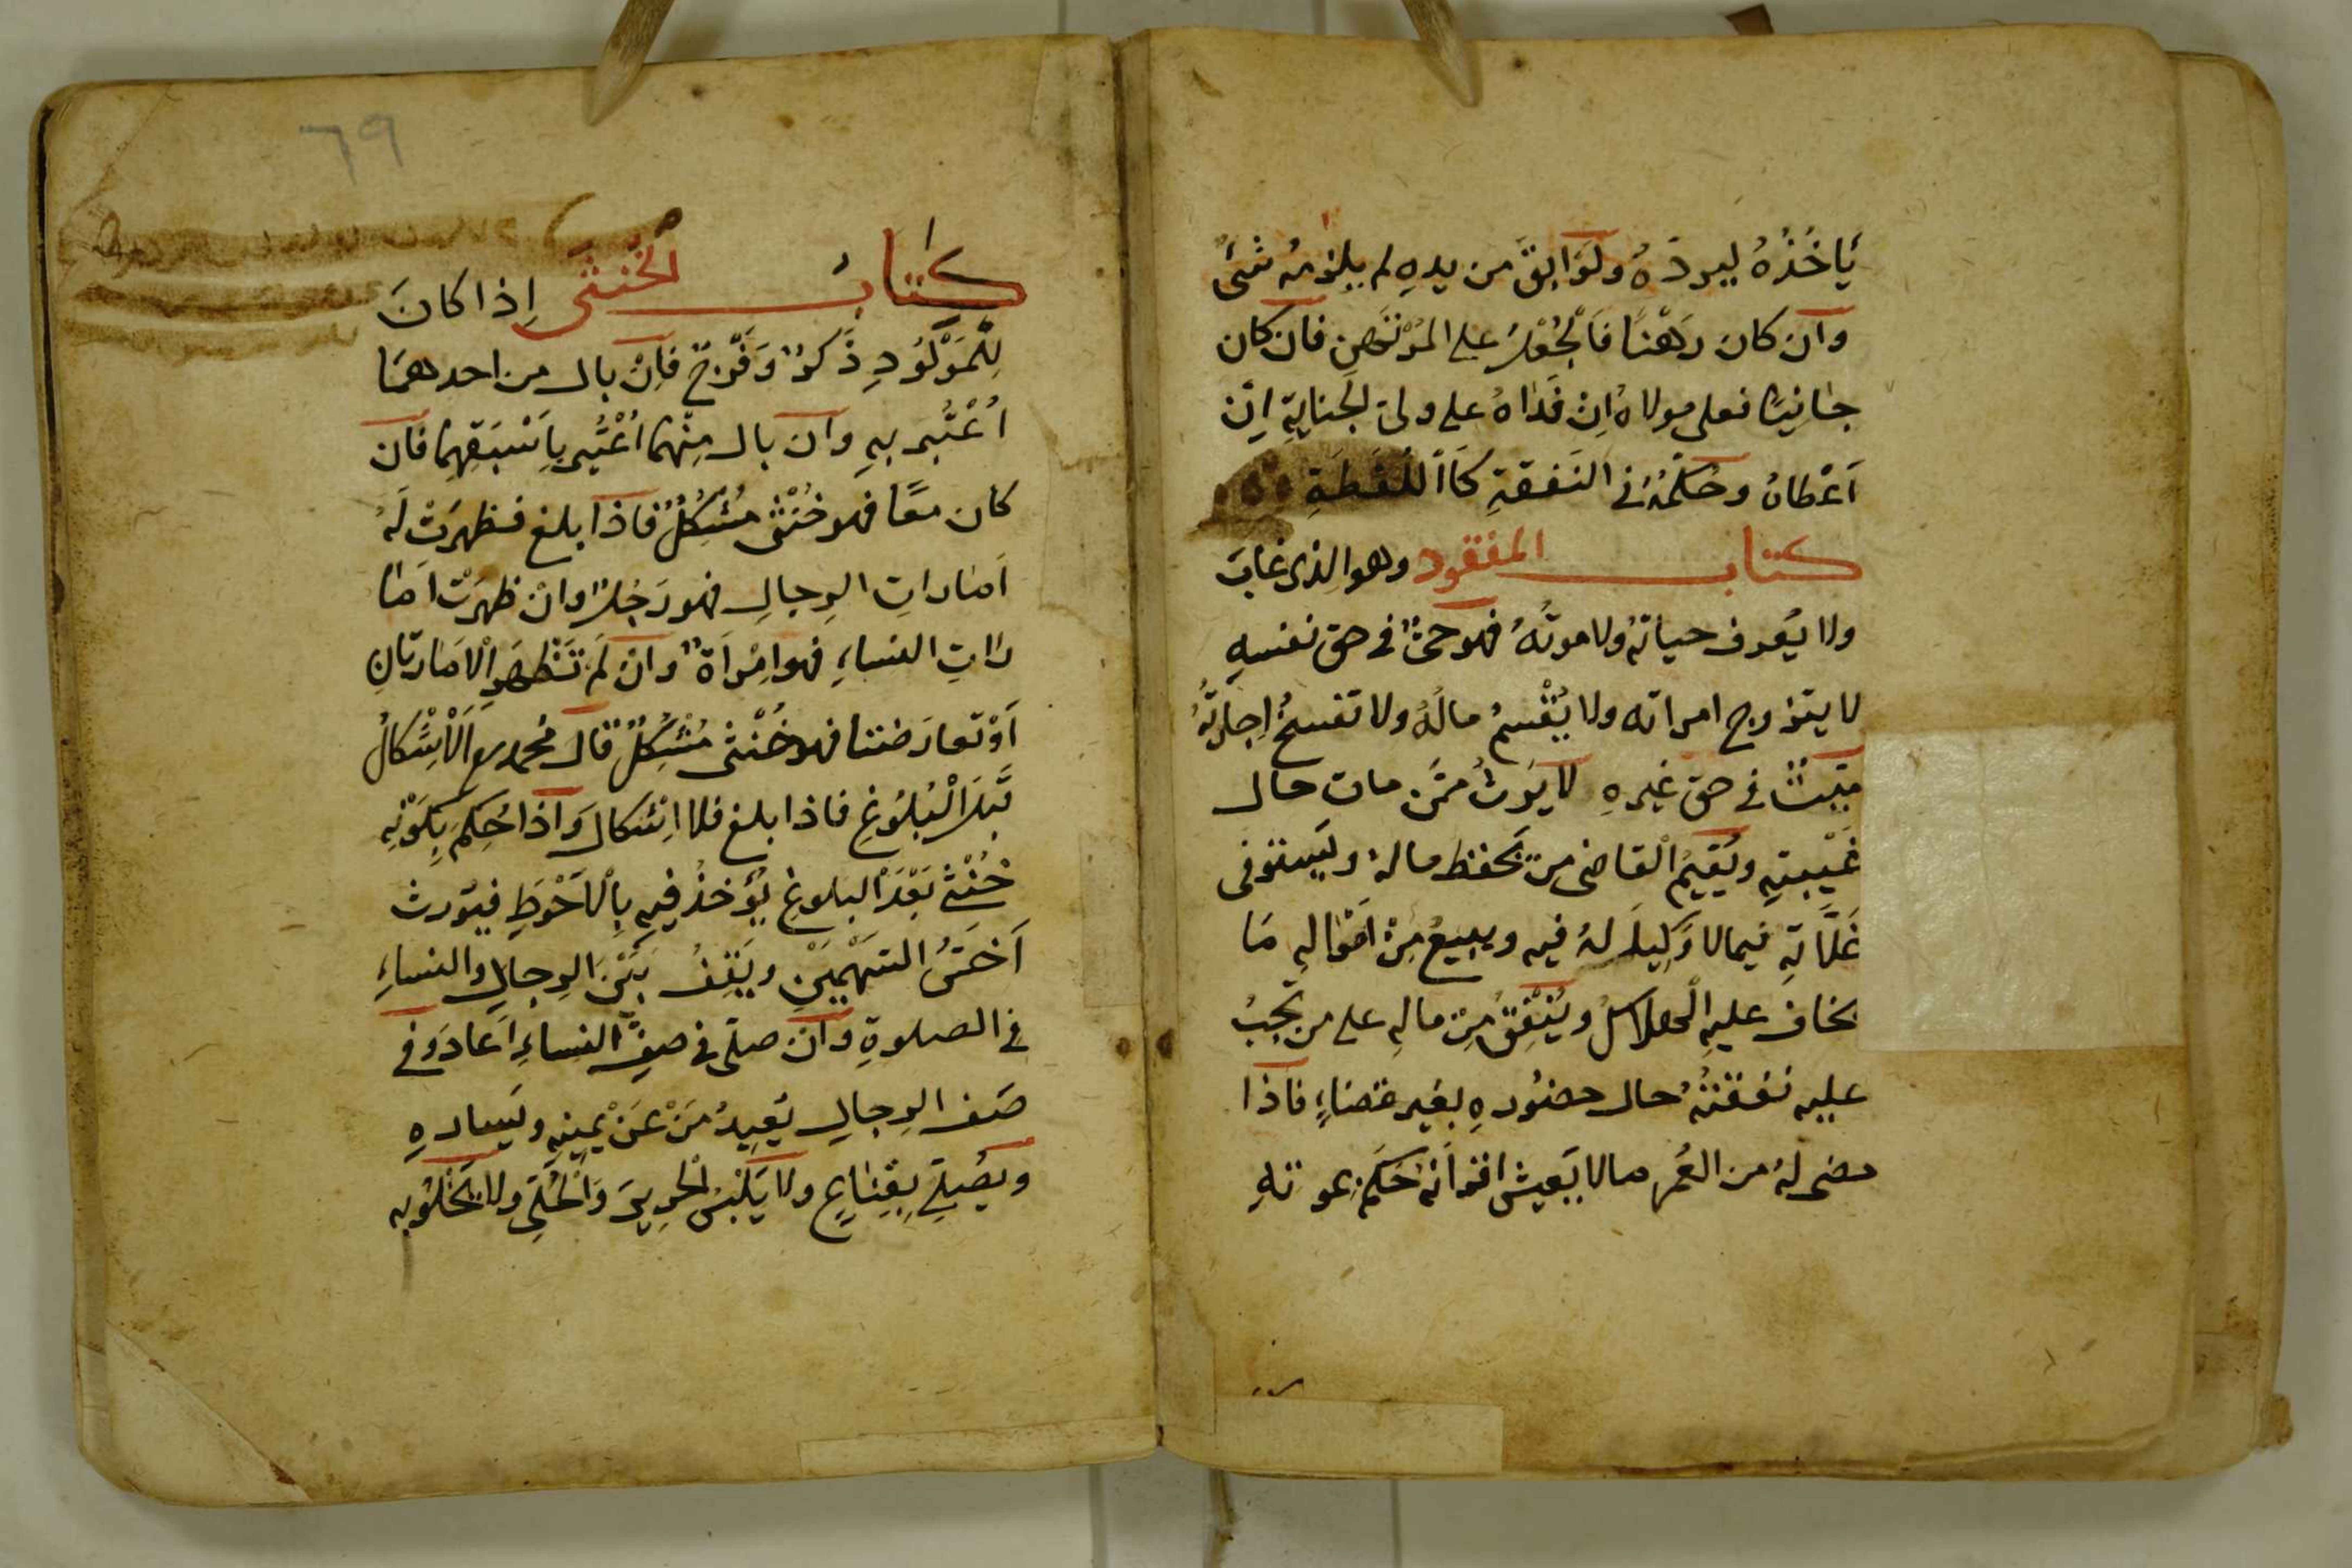 يَاخُذُهُ ليردّهُ ولوَ ابقَ من يدهِ لم يلزمهُ شئ
وان كان رَهْنًا فَالْجُعْلُ على المُرْتَهِنِ فان كان
جانيًا فعلى مولاهُ اِنْ فَداهُ على ولى الجنايةِ اِن
اَعْطاهُ وحُكْمُهُ فى النَفقةِ كَاللُّقَطَةِ
كتاب المفقود وهو الذى غابَ
ولا يُعرف حياتهُ ولا موتُهُ فهو حىٌّ فى حق نفسهِ
لا يتزوج امراته ولا يُقْسمُ مالُهُ ولا تفسخُ اجارتُهُ
ميّتٌ فى حق غيرهِ لا يَرثُ ممّن مات حال
غَيْبتِهِ ويُقيمُ القاضى من يَحفظ مالهُ ويَستوفى
غَلَّاتِهِ فيما لا وَكيلَ لهُ فيه ويبيعُ مِنْ اَمْوالهِ مَا
يخاف عليهِ الْهلاكُ ويُنْفِقُ مِن مالهِ على من تجبُ
عليه نفقتُهُ حال حضُورهِ بغير قضاءٍ فاذا
مضى لهُ من العُمر مالا يَعيش اقرانُهُ حُكِمَ بموتهِ
٦٩
كتابُ الخُنثى اِذا كانَ
لِلْمَوْلُودِ ذَكرٌ وَفَرْجٌ فَاِنْ بال من احدهمَا
اُعْتُبر بهِ وان بال مِنْهما اُعْتُبر بِاَسْبَقِهِما فان
كان معًا فهو خُنْثى مُشْكِلٌ فاذا بلغ فظهرَتْ لَهُ
اَمَاراتِ الرجالِ فهو رَجُلٌ وانْ ظهرَتْ اَمَا
رَاتِ النساءِ فهو امْرَاَةٌ وان لَم تَظْهَرِ الْاَمَارتانِ
اَوْ تعارَضَتا فهو خُنْثى مُشْكِلٌ قال محمد رح اَلْاِشْكالُ
قَبلَ الْبُلُوغِ فاذا بلغ فلا اِشْكالَ وَاذا حُكِمَ بِكَوْنِهِ
خُنْثى بَعْدَ البلوغِ يُؤخذُ فيهِ بِالْاَحْوَطِ فيُوَرث
اَخَسَّ السّهْمَيْنِ ويَقِفُ بَيْنَ الرجالِ والنساءِ
فى الصلوةِ وان صلّى فى صفّ النساءِ اَعادَ وفى
صَف الرجالِ يُعِيدُ مَنْ عَنْ يمينهِ ويَسارهِ
ويُصَلِّى بِقِنَاعٍ ولا يَلْبَسُ الحريرَ وَالْحُلِىَّ ولا يَخْلُو بهِ